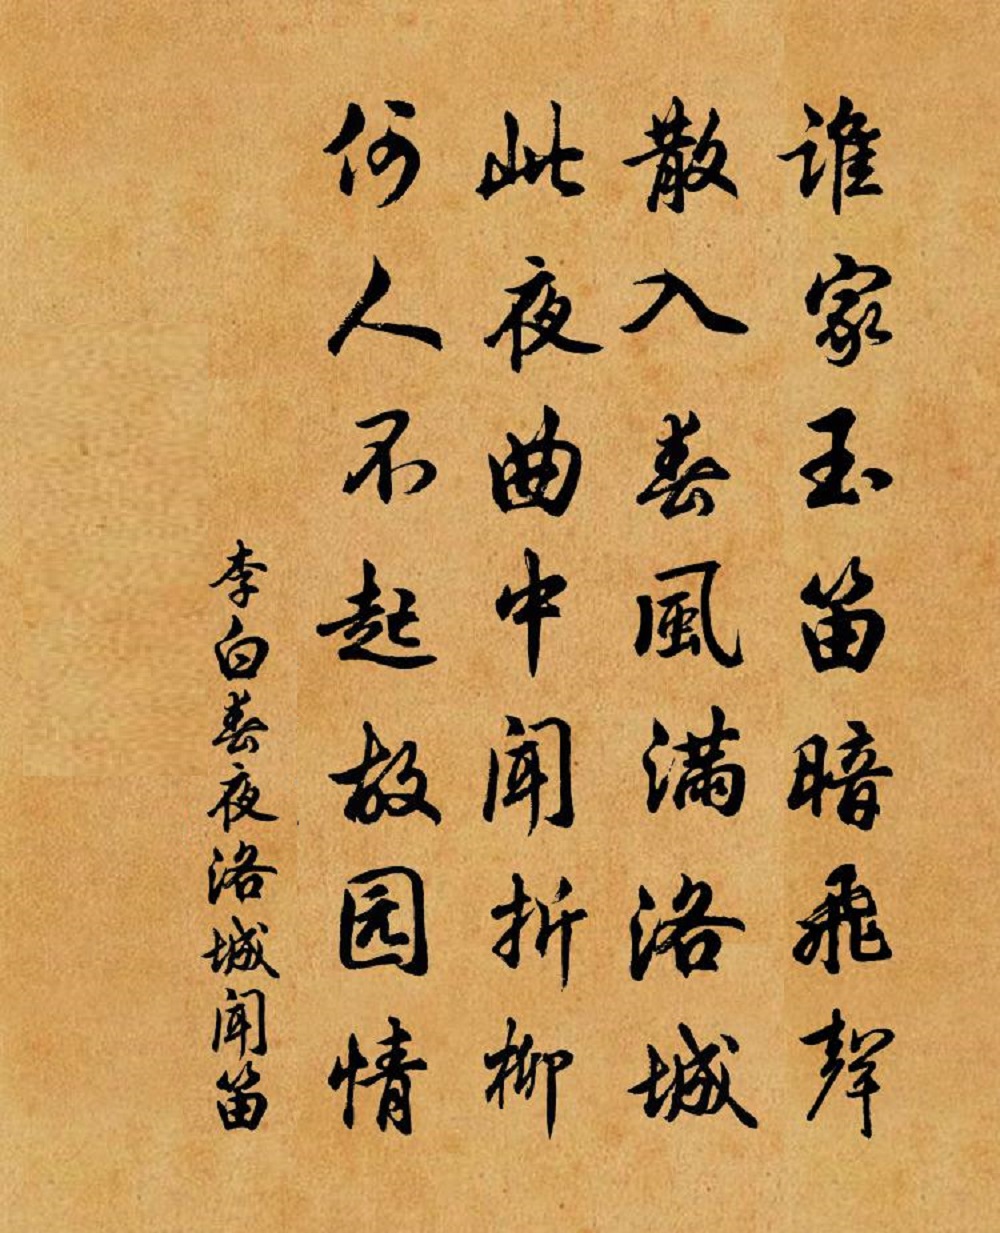 谁家玉笛暗飛聲
散入春風滿洛城
此夜曲中闻折柳
何人不起故园情
李白春夜洛城闻笛